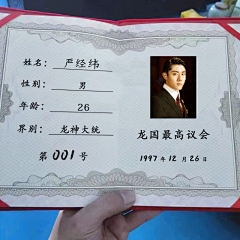 姓名：严经纬
性别：男
年龄：26
界别：龙神大统
第001号
龙国最高议会
1997年12月26日